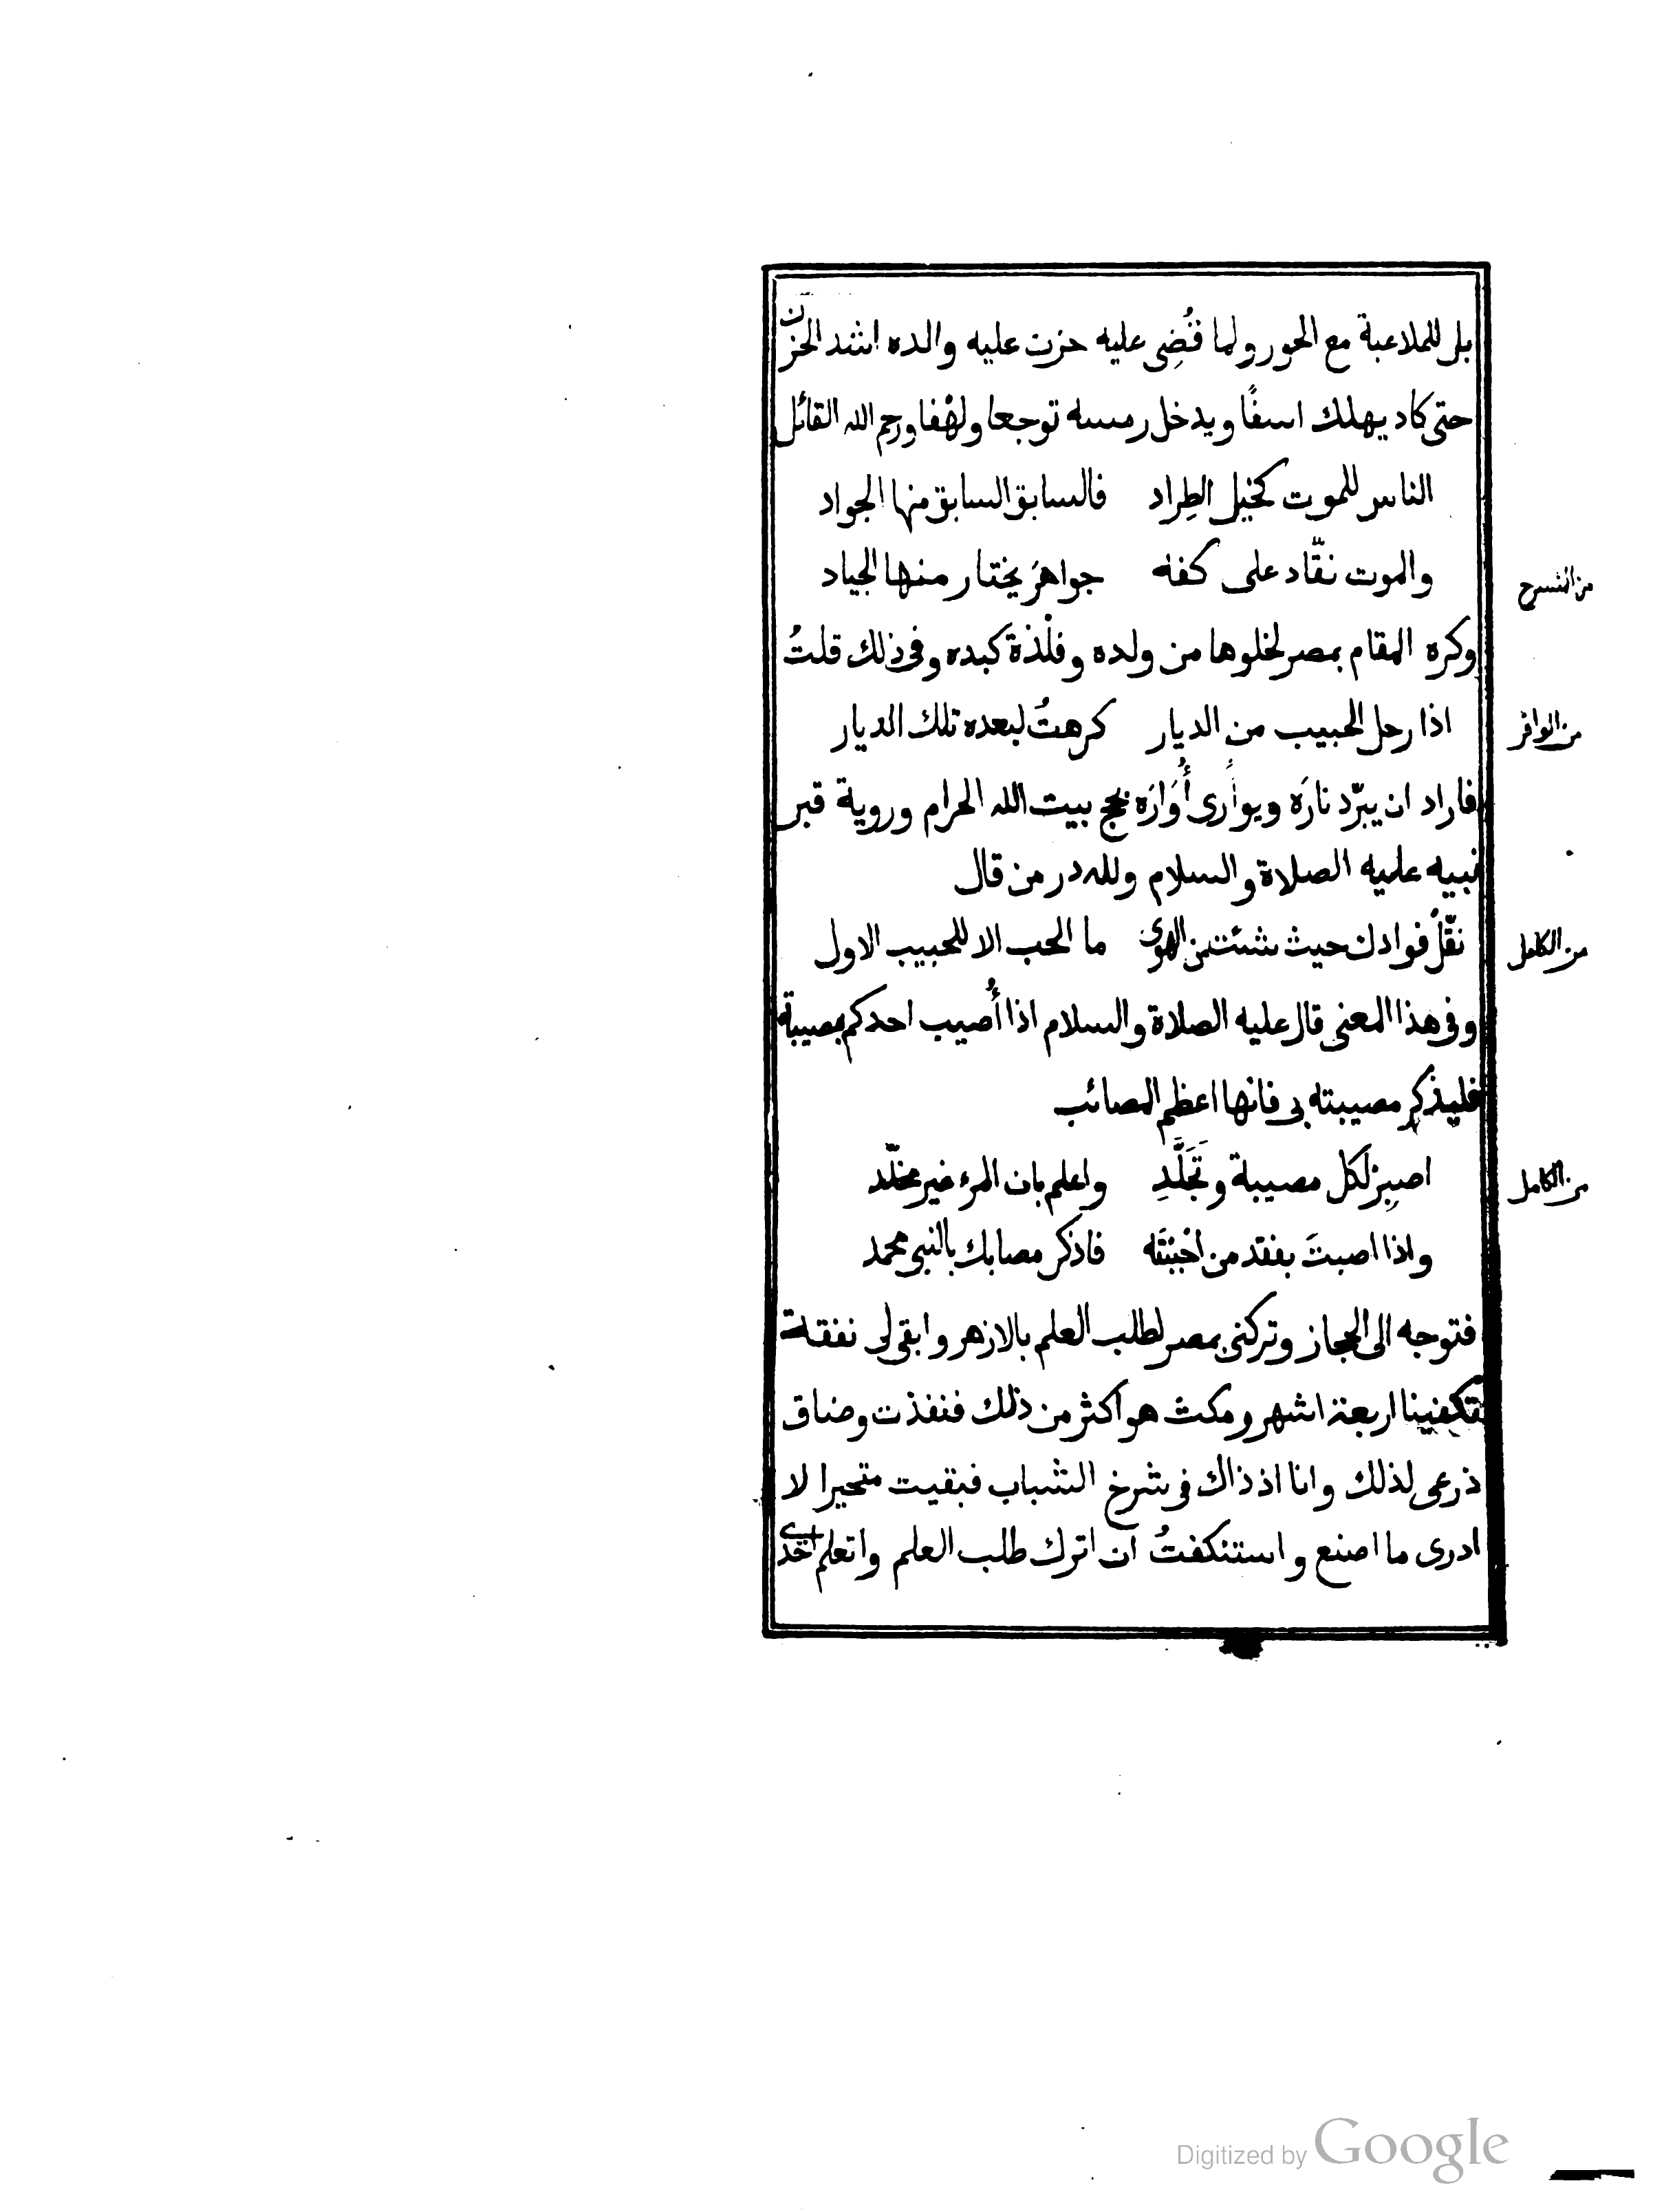 بل للملاعبة مع الحور ولما قُضِى عليه حزن عليه والده اشد الحزن
حتى كاد يهلك اسفًا ويدخل رمسه توجعا ولهْفا ورحم الله القائل
الناس للموت كخيل الطِراد فالسابق السابق منها الجواد
والموت نقّاد على كفه جواهرَ يختار منها الجياد
من المنسرح
وكره المقام بمصر لخلوها من ولده وفلْذة كبده وفى ذلك قلتُ
اذا رحل الحبيب من الديار كرهتُ لبعده تلك الديار
من الوافر
فاراد ان يبرّد نارَه ويوارى أُوَارَه بحج بيت الله الحرام وروية قبر
نبيه عليه الصلاة والسلام ولله در من قال
نقّلْ فوادك حيث شئت من الهوى ما الحب الا للحبيب الاول
من الكامل
وفى هذا المعنى قال عليه الصلاة والسلام اذا أُصيب احدكم بمصيبة
فليذكر مصيبته بى فانها اعظم المصائب
اصبر لكل مصيبة وتَجَلَّدِ واعلم بان المرء غير مخلّد
من الكامل
واذا اصبتَ بفقد من احْبَبْتَه فاذكر مصابك بالنبى محمد
فتوجه الى الحجاز وتركنى بمصر لطلب العلم بالازهر وابقى لى نفقة
تكفينا اربعة اشهر ومكث هو اكثر من ذلك فنفذت وضاق
ذرعى لذلك وانا اذ ذاك فى شرخ الشباب فبقيت متحيرا لا
ادرى ما اصنع واستنكفتُ ان اترك طلب العلم واتعلم احدى
Digitized by Google